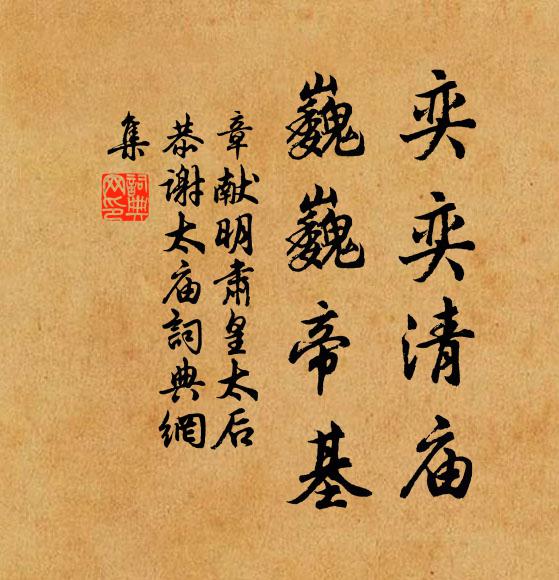 奕奕清庙
巍巍帝基
章献明肃皇太后
恭谢太庙詞典網
集
詞典網印